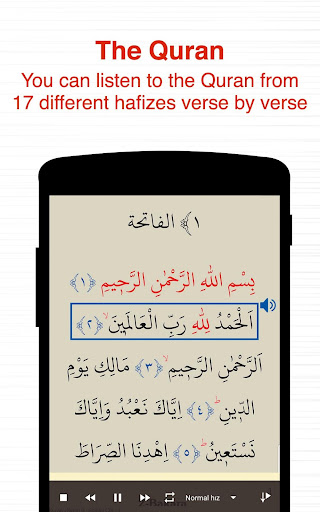 The Quran
You can listen to the Quran from
17 different hafizes verse by verse
١﴾ الفاتحة
بِسْمِ اللهِ الرَّحْمٰنِ الرَّح۪يمِ ﴿١﴾
اَلْحَمْدُ لِلهِ رَبِّ الْعَالَم۪ينَۙ ﴿٢﴾
اَلرَّحْمٰنِ الرَّح۪يمِۙ ﴿٣﴾ مَالِكِ يَوْمِ
الدّ۪ينِۜ ﴿٤﴾ اِيَّاكَ نَعْبُدُ وَاِيَّاكَ
نَسْتَع۪ينُۜ ﴿٥﴾ اِهْدِنَا الصِّرَاطَ
Normal hız